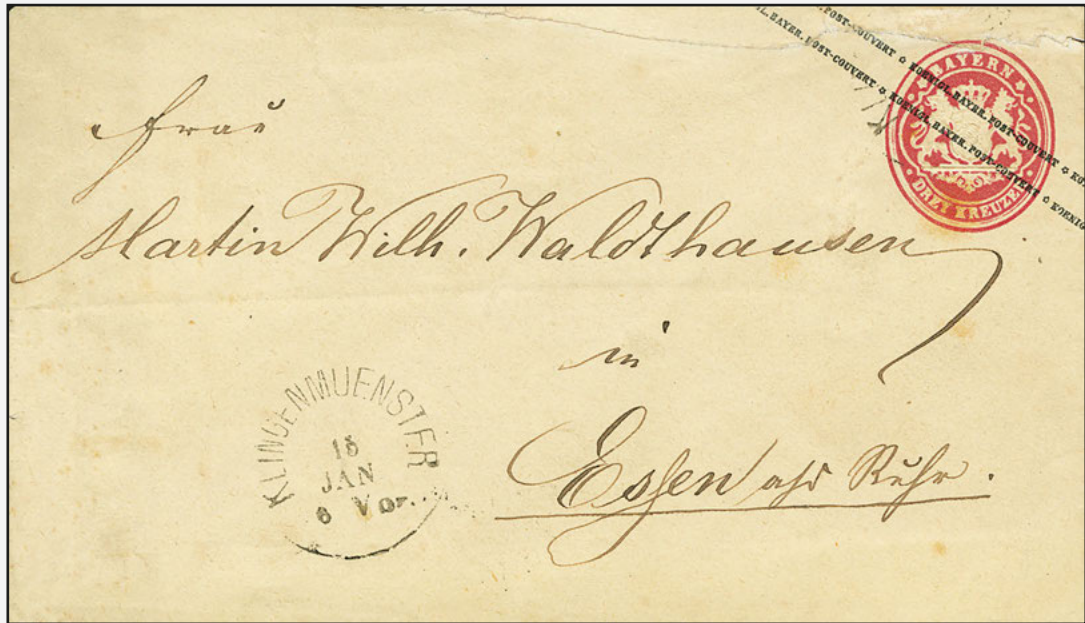 L. BAYER. POST-COUVERT ✿ KOENIGL. BAYER. POST-COUVERT ✿ KOENIGL. BAYER. POST-COUVERT ✿ KOENIG
BAYERN
DREI KREUZER
Frau
Martin Wilh. Waldthausen
in
Essen a/d Ruhr.
KLINGENMUENSTER
15
JAN
6 Vor.